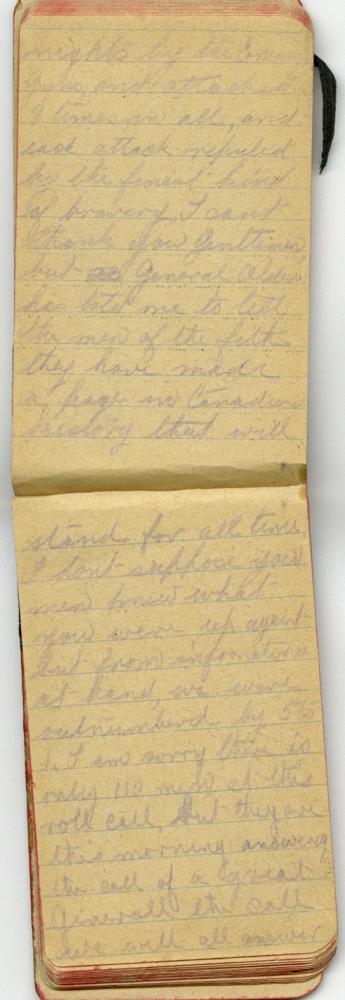 nights by the enemy
Guns, and attacked
9 times in all, and
each attack repulsed
by the finest kind
of bravery, I cant
thank you Gentlemen
but General Alder
has told me to tell
the men of the fifth
they have made
a page in Canadian
history that will
stand for all time
I dont suppose you
men knew what
you were up against
but from information
at hand, we were
outnumberd by 5 to
1. I am sorry there is
only 110 men at this
roll call, But they are
this morning answering
the call of a great
Generall the call
we will all answer